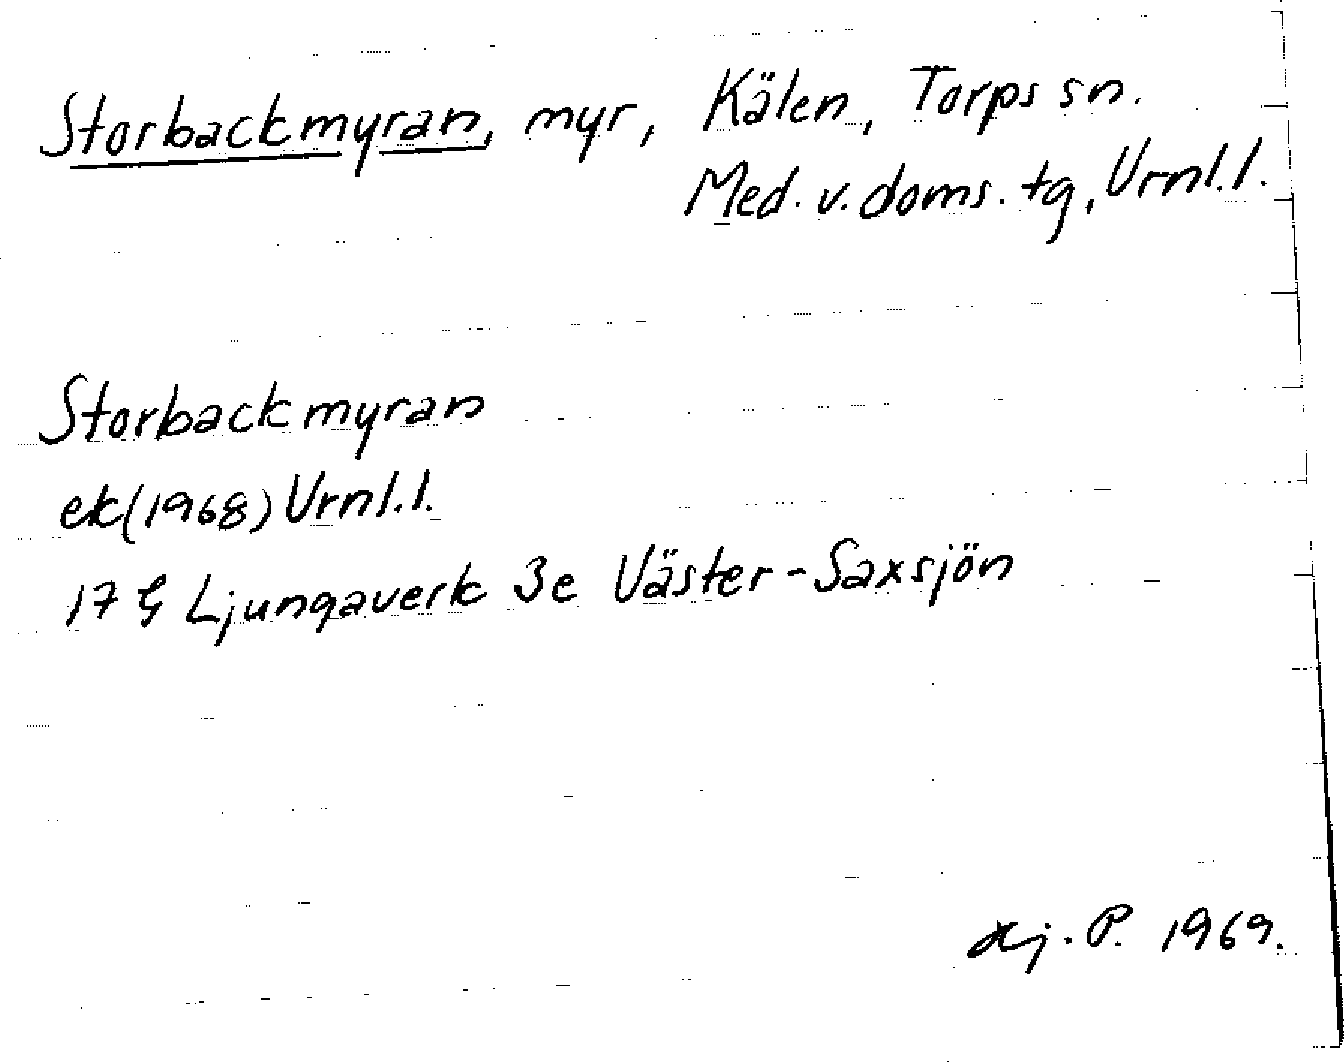 Storbackmyran, myr, Kälen, Torps sn.
Med. v. doms. tg, Vrnl.l.
Storbackmyran
ek(1968) Vrnl.l.
17 G Ljungaverk 3e Väster-Saxsjön
P. 1969.